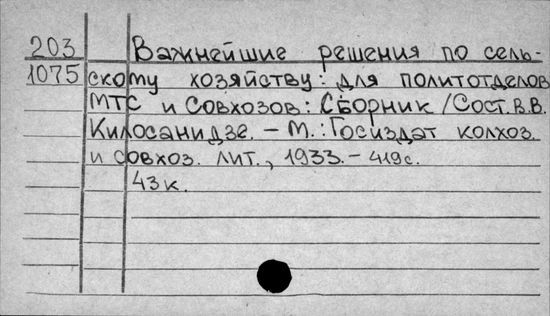 203 Важнейшие решения по сель-
1075 скому хозяйству: для политотделов
МТС и совхозов: Сборник /Сост. В.В.
Килосанидзе. – М.: Госиздат колхоз.
и совхоз. лит., 1933. – 419с.
43к.